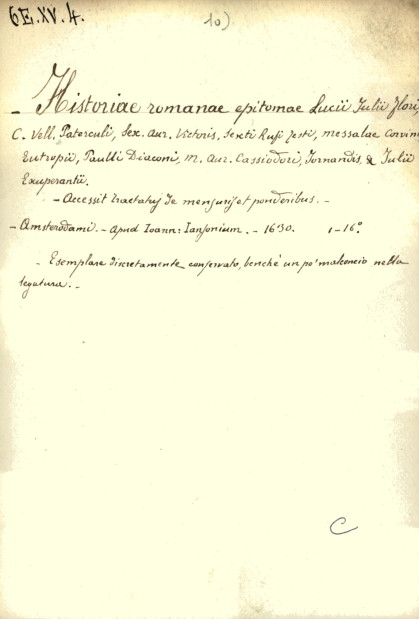 6E.XV.4.
10)
— Historiae romanae epitomae Lucii Julii Flori,
C. Vell. Paterculi, Sex. Aur. Victoris, Sexti Rufi Festi, messalae Corvini
Eutropii, Paulli Diaconi, M. Aur. Cassiodori, Jornandis, & Julii
Exuperantii.
— Accessit tractatus de mensuris et ponderibus. —
— Amsterdami. — Apud Ioann: Iansonium. — 1630. 1—16°
— Esemplare discretamente conservato, benchè un po' malconcio nella
legatura. —
C